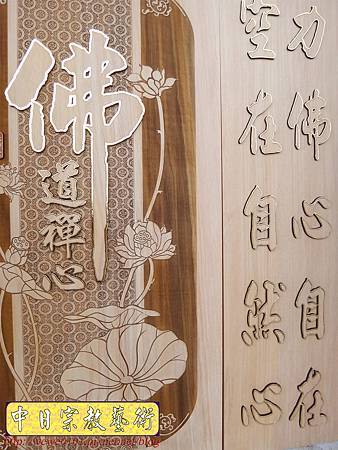 力佛心自在
空在自然心
佛
道禪心
中日宗教藝術